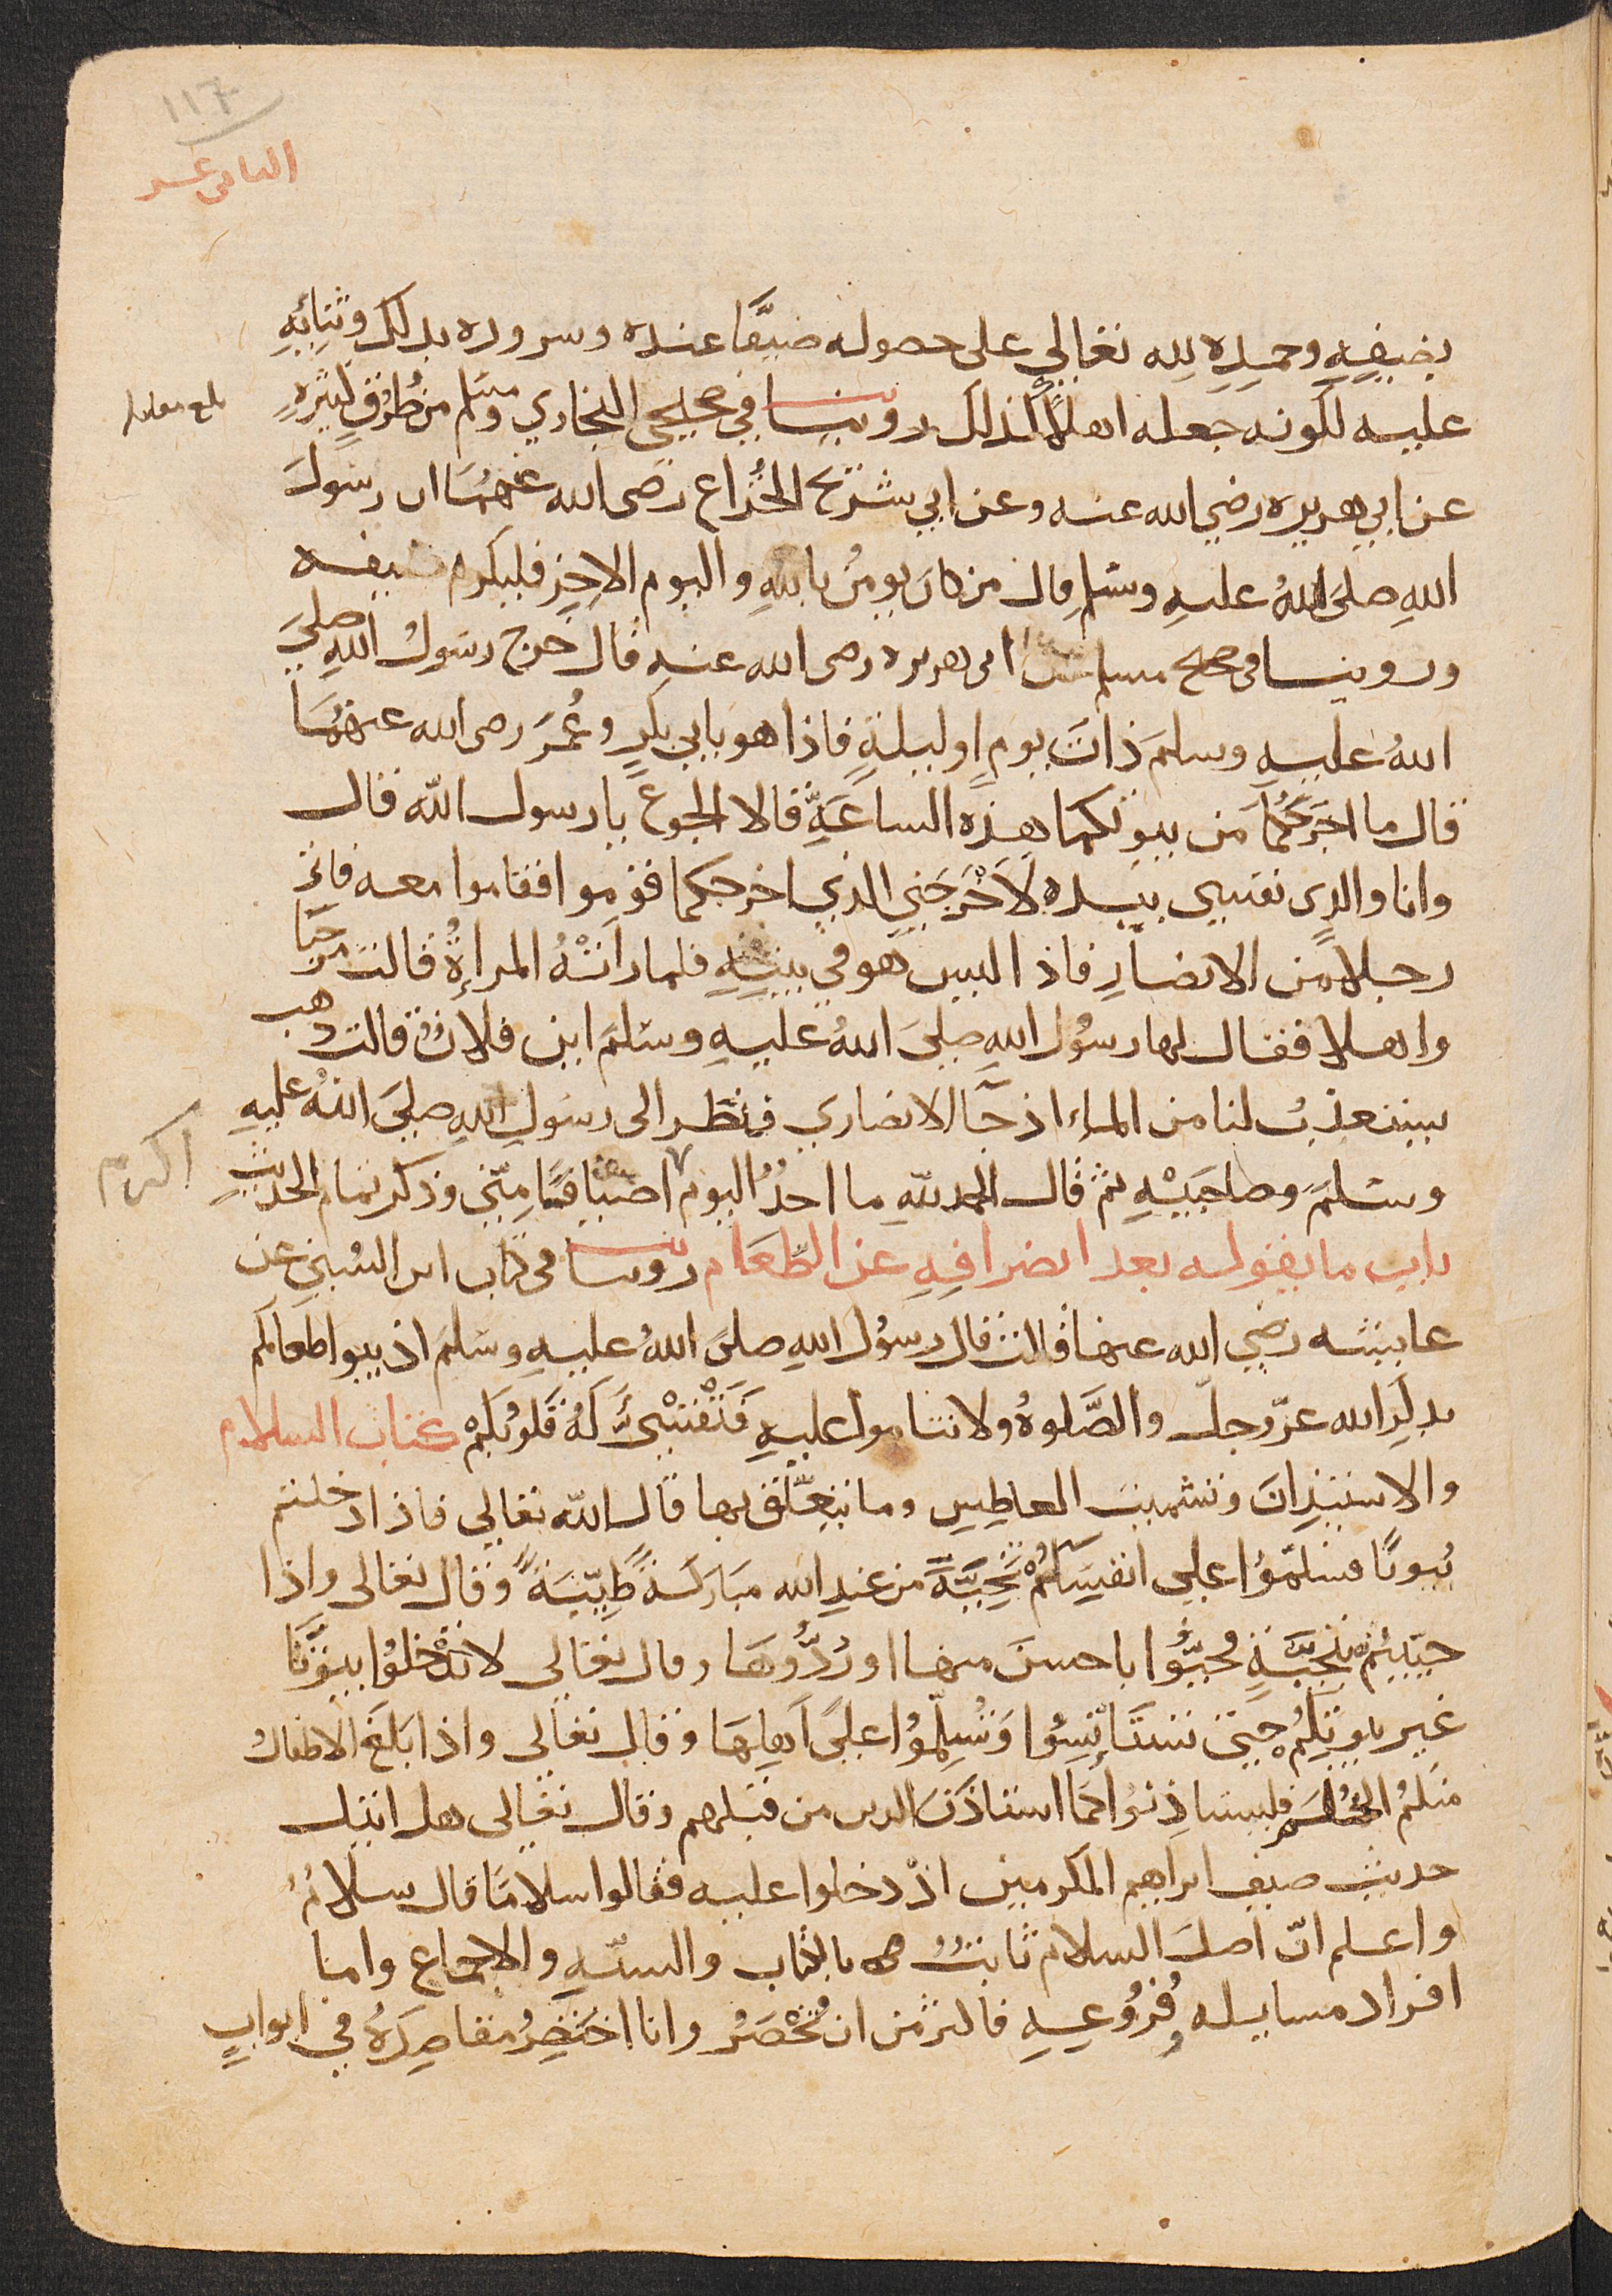 ١١٦
الثامن عشر
بضيفِهِ وحمدِهِ لِله تعالى على حصوله ضيفًا عنده وسروره بذلك وثنائِهِ
عليه لكونه جعله اهلًا لذلك روينا في صحيحي البخاري ومسلم من طُرقٍ كثيرهٍ
بلغ مقابله
عن ابي هريره رضي الله عنه وعن ابي شريح الخُزاعي رضى الله عنهُما ان رسولَ
اللهِ صلى اللهُ عليهِ وسلم قال من كانَ يومنُ باللهِ واليومِ الاخِرِ فليكرم ضيفه
وروينا فى صحيح مسلم عن ابى هريره رضى الله عنه قال خرج رسولُ اللهِ صلىَ
اللهُ عليهِ وسلمَ ذاتَ يومٍ او ليلةٍ فاذا هو بابي بكرٍ وعُمَرَ رضى الله عنهُمَا
قال ما اخرَجَكُمَا من بيوتكما هذه الساعَةَ قالا الجوعُ يا رسول الله قال
وانا والذِى نفسِي بيدهِ لَاَخْرَجَنِي الذي اخرجكما قوموا فقاموا معه فاتَى
رجلا من الانصارِ فاذا ليس هو في بيتِهِ فلما رأتْهُ المراةُ قالت مرحبًا
واهلا فقال لها رسُولُ اللهِ صلىَ اللهُ عليهِ وسلمَ اين فلانٌ قالت ذهب
يستعذبُ لنا من الماءِ اذ جآ الانصاري فنظر الى رسولِ اللهِ صلىَ اللهُ عليهِ
وسلمَ وصاحبَيْهِ ثم قال الحمد للهِ ما احدٌ اليومَ اضيافًا مِنّي وذكر تمام الحديثِ
اكرم
باب ما يقوله بعد انصرافِهِ عن الطَّعَام روينا فى كتاب ابن السُّني عن
عايشه رضي الله عنها قالت قال رسُول اللهِ صلىَ اللهُ عليهِ وسَلمَ اذيبوا طعامكم
بذكرِ الله عزّ وجلّ والصَّلوهِ ولا تناموا عليهِ فَتَقْسُوَ لَهُ قلوبكمْ كتاب السلام
والاستيذانِ وتشميت العاطِسِ وما يتعلّق بها قال الله تعالى فاذا دخلتم
بُيوتًا فسلمّوُا على انفُسِكُمْ تَحِيَّةً من عندِ الله مباركةً طيّبَةً وقال تعالى واذا
حيّيتُمْ بتحيَّةٍ فحيّوُا باحسنَ منها او رُدُّوهَا وقال تعالى لا تدْخلوُا بيوتًا
غير بيوتِكُمْ حتى تستَأنِسُوا وَتُسلِّموُا على اهلِهَا وقال تعالى واذا بَلَغَ الاطفالُ
منكمُ الحُلُمَ فليستاذِنوُا كمَا استاذَنَ الذين من قبلهم وقال تعالى هل اتيك
حديث ضيف ابراهيم المكرمين اذْ دخلوا عليه فقالوا سلامًا قال سلامٌ
واعلم انّ اصلَ السلام ثابتٌ بالكتاب والسنّهِ والاجماع وامـا
افراد مسايله وفُرُوعِهِ فاكثر من ان تُحْصَرُ وانا اختصِرُ مقاصِدَهُ في ابوابٍ